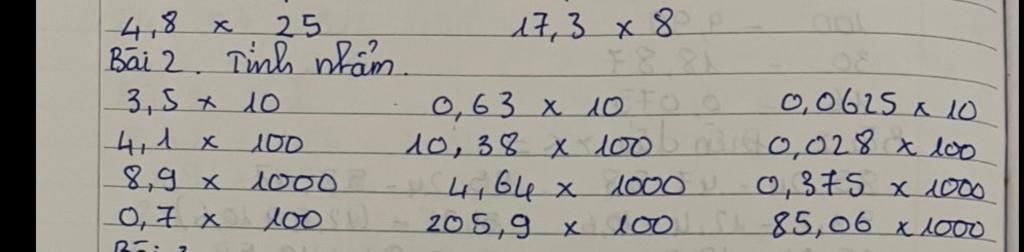 4,8 x 25 17,3 x 8
Bài 2. Tính nhẩm.
3,5 x 10 0,63 x 10 0,0625 x 10
4,1 x 100 10,38 x 100 0,028 x 100
8,9 x 1000 4,64 x 1000 0,375 x 1000
0,7 x 100 205,9 x 100 85,06 x 1000